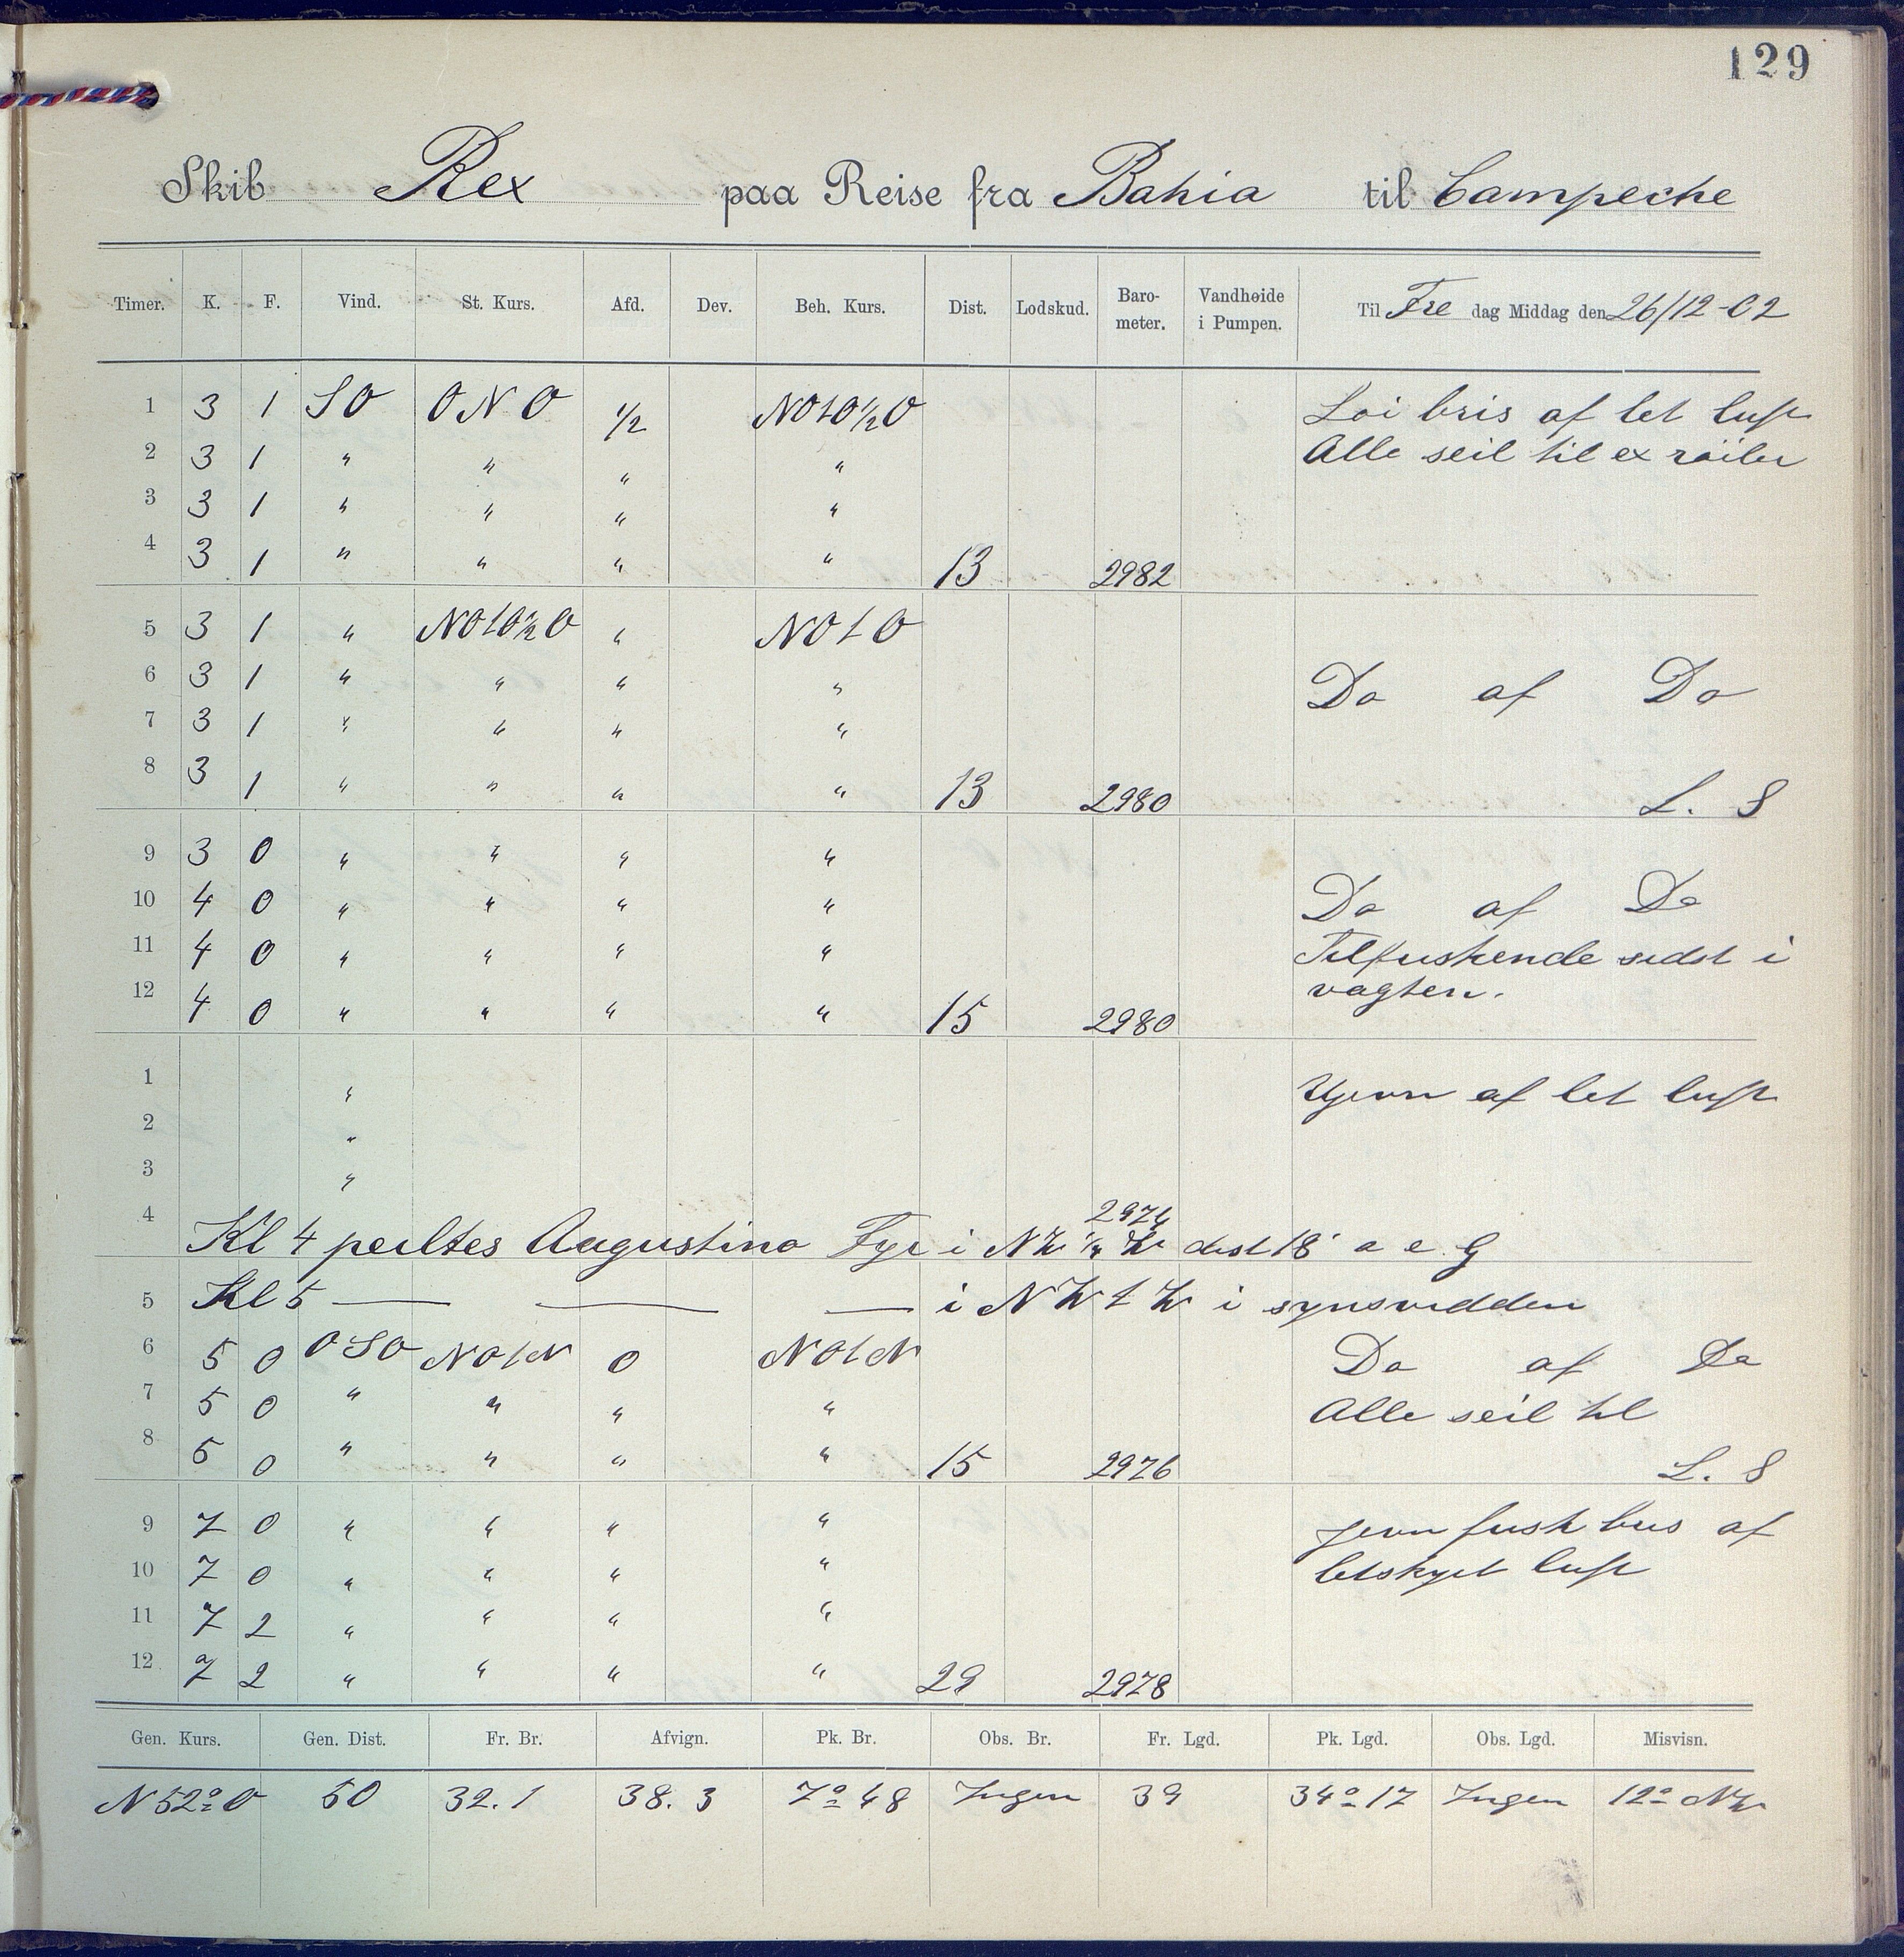 129
Skib Rex paa Reise fra Bahia til Campeche
Timer. K. F. Vind. St. Kurs. Afd. Dev. Beh. Kurs. Dist. Lodskud. Baro-meter. Vandhøide i Pumpen. Til Fre dag Middag den 26/12-02
1 3 1 SO ONO 1/2 NOtO1/2O Loi bris af let luft
2 3 1 " " " " Alle seil til ex röiler
3 3 1 " " " "
4 3 1 " " " " 13 2982
5 3 1 " NOtO1/2O " NOtO
6 3 1 " " " " Do af Do
7 3 1 " " " "
8 3 1 " " " " 13 2980 L. S
9 3 0 " " " "
10 4 0 " " " " Do af Do
11 4 0 " " " " Tilfriskende sidst i
12 4 0 " " " " 15 2980 vagten.
1 " af let luft
2 "
3 "
4 2974
Kl 4 peiltes Augustino Fyr i NW 1/4 W dist 18' a e. G
5 Kl 5 — — — i NWtW i synsvidden
6 5 0 OSO NOtN 0 NOtN Do af Do
7 5 0 " " " " Alle seil til
8 5 0 " " " " 15 2976 L. S
9 7 0 " " " " jevn frisk bris af
10 7 0 " " " " letskyet luft
11 7 2 " " " "
12 7 2 " " " " 29 2978
Gen. Kurs. Gen. Dist. Fr. Br. Afvign. Pk. Br. Obs. Br. Fr. Lgd. Pk. Lgd. Obs. Lgd. Misvisn.
N 52° O 50 32.1 38.3 7° 48 Ingen 39 34° 17 Ingen 12° NW